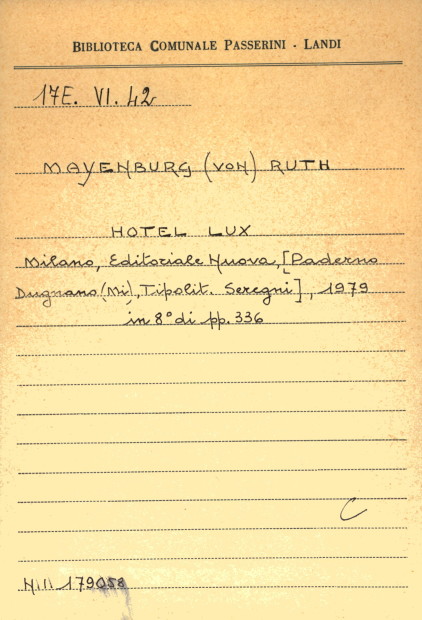 BIBLIOTECA COMUNALE PASSERINI - LANDI
17E. VI. 42
MAYENBURG (VON) RUTH
HOTEL LUX
Milano, Editoriale Nuova, [Paderno
Dugnano (Mi), Tipolit. Seregni], 1979
in 8° di pp. 336
C
179058